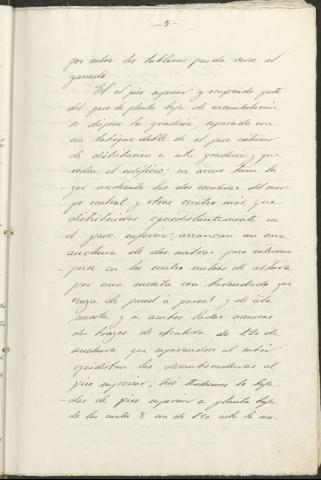 - 5 -
por entre los tablones pueda verse el
ganado.
El el piso superior y ocupando parte
del paso de planta baja de circunvalación
se dispone la gradería, separada con
un tabique doble de el paso exterior
de distribucion a esta gradería, y que
rodea el edificio; su acceso tiene lu-
gar mediante las dos escaleras del cuer-
po central y otras cuatro más, que
distribuidas equidistantemente en
el paso inferior, arrancan con una
anchura de dos metros para interrum-
pirse en los cuatro metros de altura
por una meseta con barandado que
cruza de pared a pared y de esta
meseta, y a ambos lados arrancan
dos brazos de escalera de 1'20 de
anchura que separandose al subir
equidistan las desembocaduras al
piso superior; así tendremos 10 baja-
das de piso superior a planta baja
de las cuales 8 son de 1'20 ancho de me-